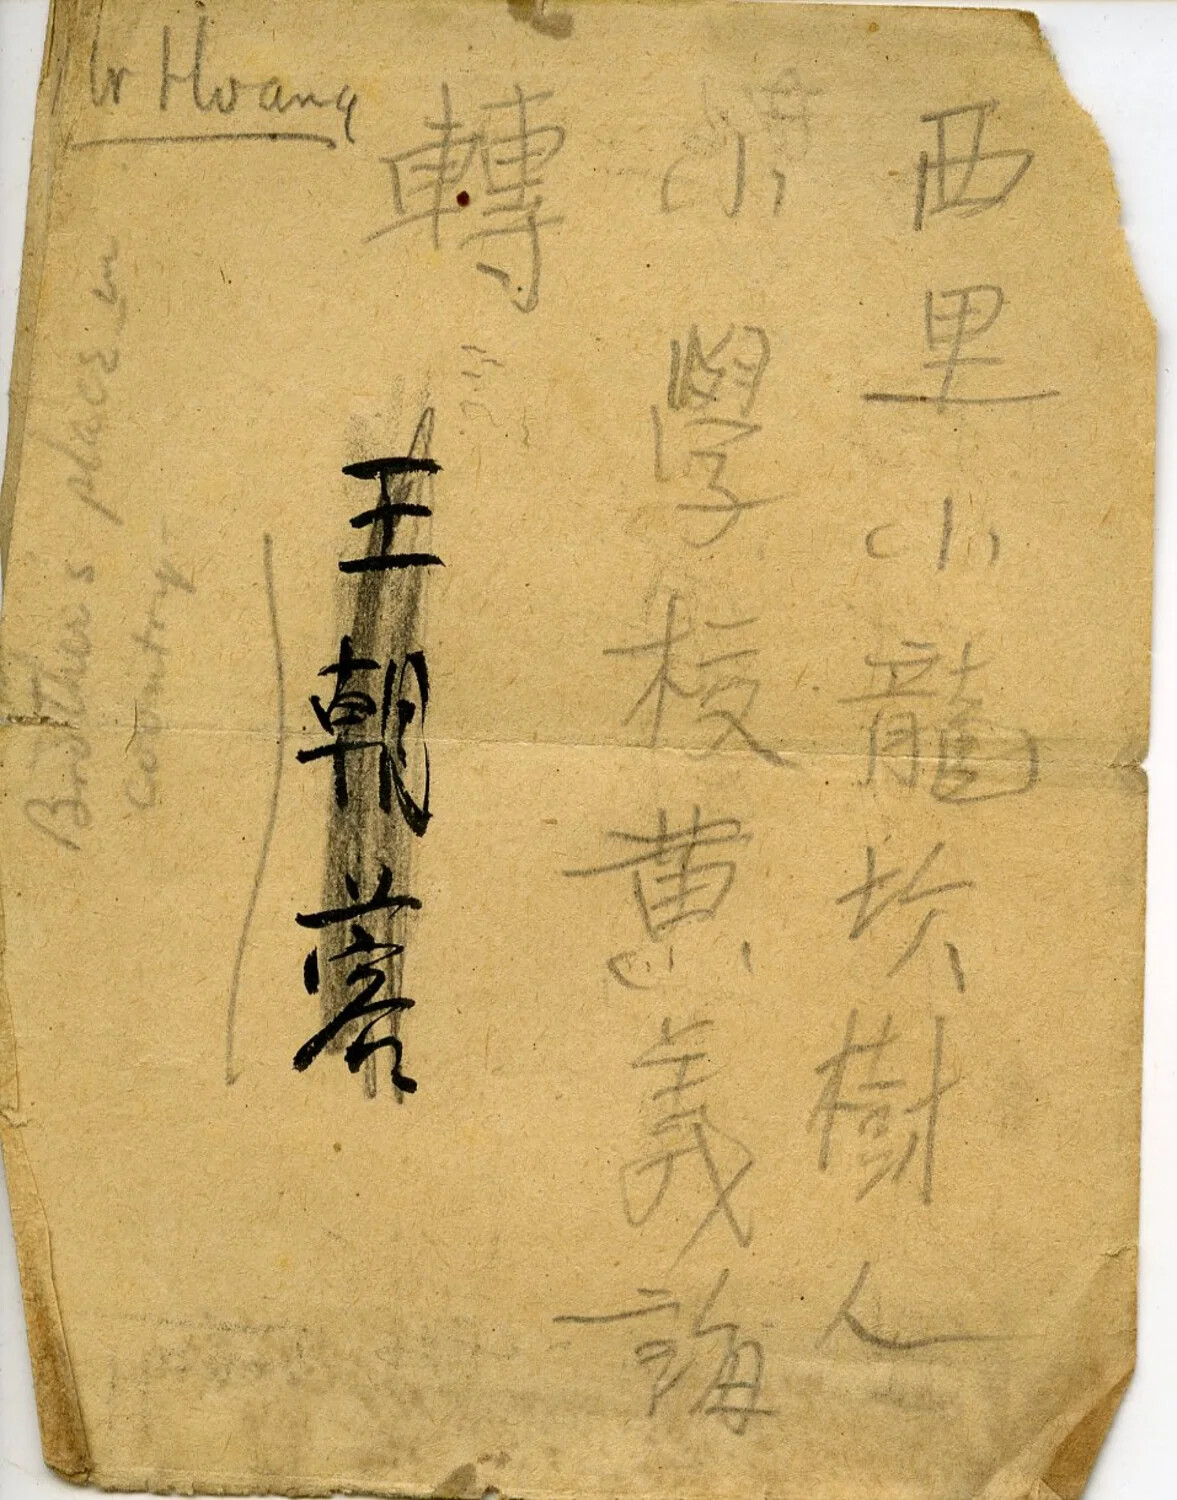 西里小龍坎樹人
小學校黄義誨
轉
王朝蓉
Mr Hwang
Brother's place in
country